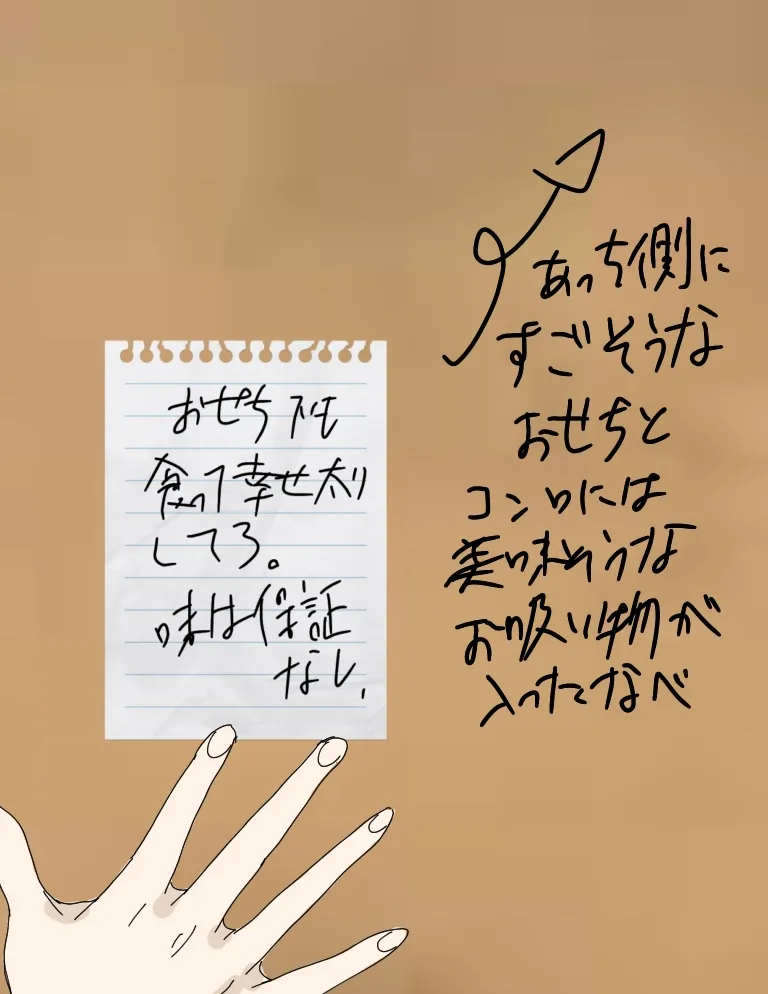 おせちでも
食って幸せ太り
してろ。
味は保証
なし、
あっち側に
すごそうな
おせちと
コンロには
美味そうな
お吸い物が
入ったなべ